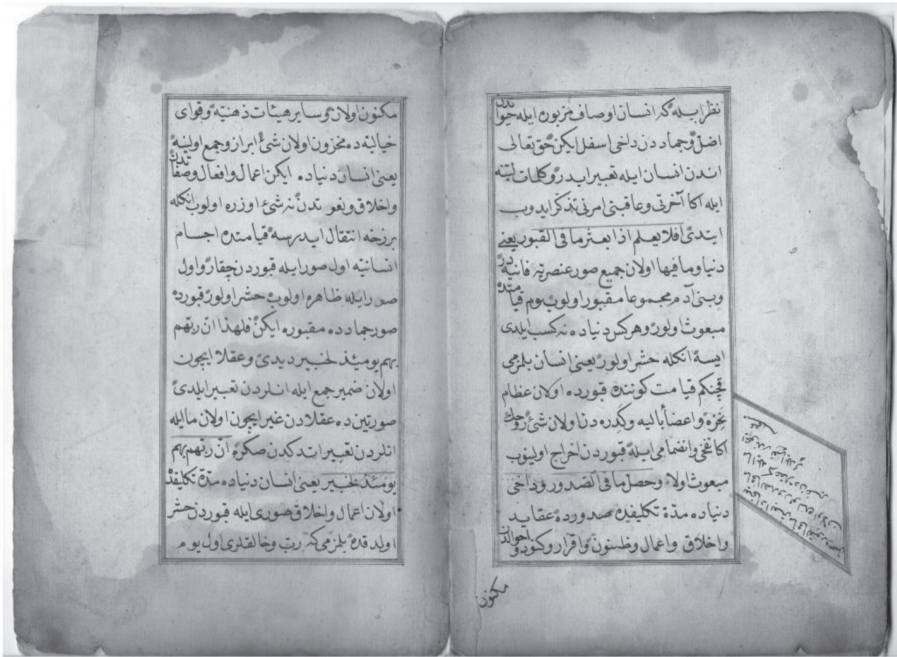 نظر ایله که انسان اوصاف مزبوره ایله حیواندن
اضل و جماد دن داخی اسفل ایکن حق تعالی
اندن انسان ایله تعبیر ایدر و کلمات لینه
ایله اکا آخرتی و عاقبتی امرنی تذکر ایدوب
ایتدی افلا یعلم اذا بعثر ما فی القبور یعنی
دنیا و ما فیها اولان جمیع صور عنصریه فانیه در
و بنی آدم مجموعا مقبور اولوب یوم قیامتده
مبعوث اولور و هر کس دنیاده نه کسب ایلدی
ایسه انکله حشر اولور یعنی انسان بلزمی
قچنکم قیامت کوننده قبورده اولان عظام
نخره و اعضأ بالیه و کدره دن اولان شئ روحک
اکا نفخی و انضمامی ایله قبوردن اخراج اولینوب
مبعوث اولا و حصل ما فی الصدور و داخی
دنیاده مدة تکلیفده صدورده عقاید
و اخلاق و اعمال و ظنون و اقرار و کنود و احوالدن
مکنون
مکنون اولان و سایر هیئات ذهنیه و قوای
خیالیه ده مخزون اولان شئ ابراز و جمع اولینه
یعنی انسان دنیاده ایکن اعمال و افعال و صفاتدن
و اخلاق و نعوتدن نه شئ اوزره اولوب انکله
برزخه انتقال ایدرسه قیامتده اجسام
انسانیه اول صور ایله قبوردن چقار و اول
صور ایله ظاهر اولوب حشر اولور قبورده
صور جمادده مقبوره ایکن فلهذا ان ربهم
بهم یومئذ لخبیر دیدی و عقلا ایچون
اولان ضمیر جمع ایله انلردن تعبیر ایلدی
صورتین ده عقلادن غیر ایچون اولان ما ایله
انلردن تعبیر اتدکدن صکره ان ربهم بهم
یومئذ لخبیر یعنی انسان دنیاده مدة تکلیفده
اولان اعمال و اخلاق صوری ایله قبوردن حشر
اولدقده بلزمی که رب و خالقلری اول یوم